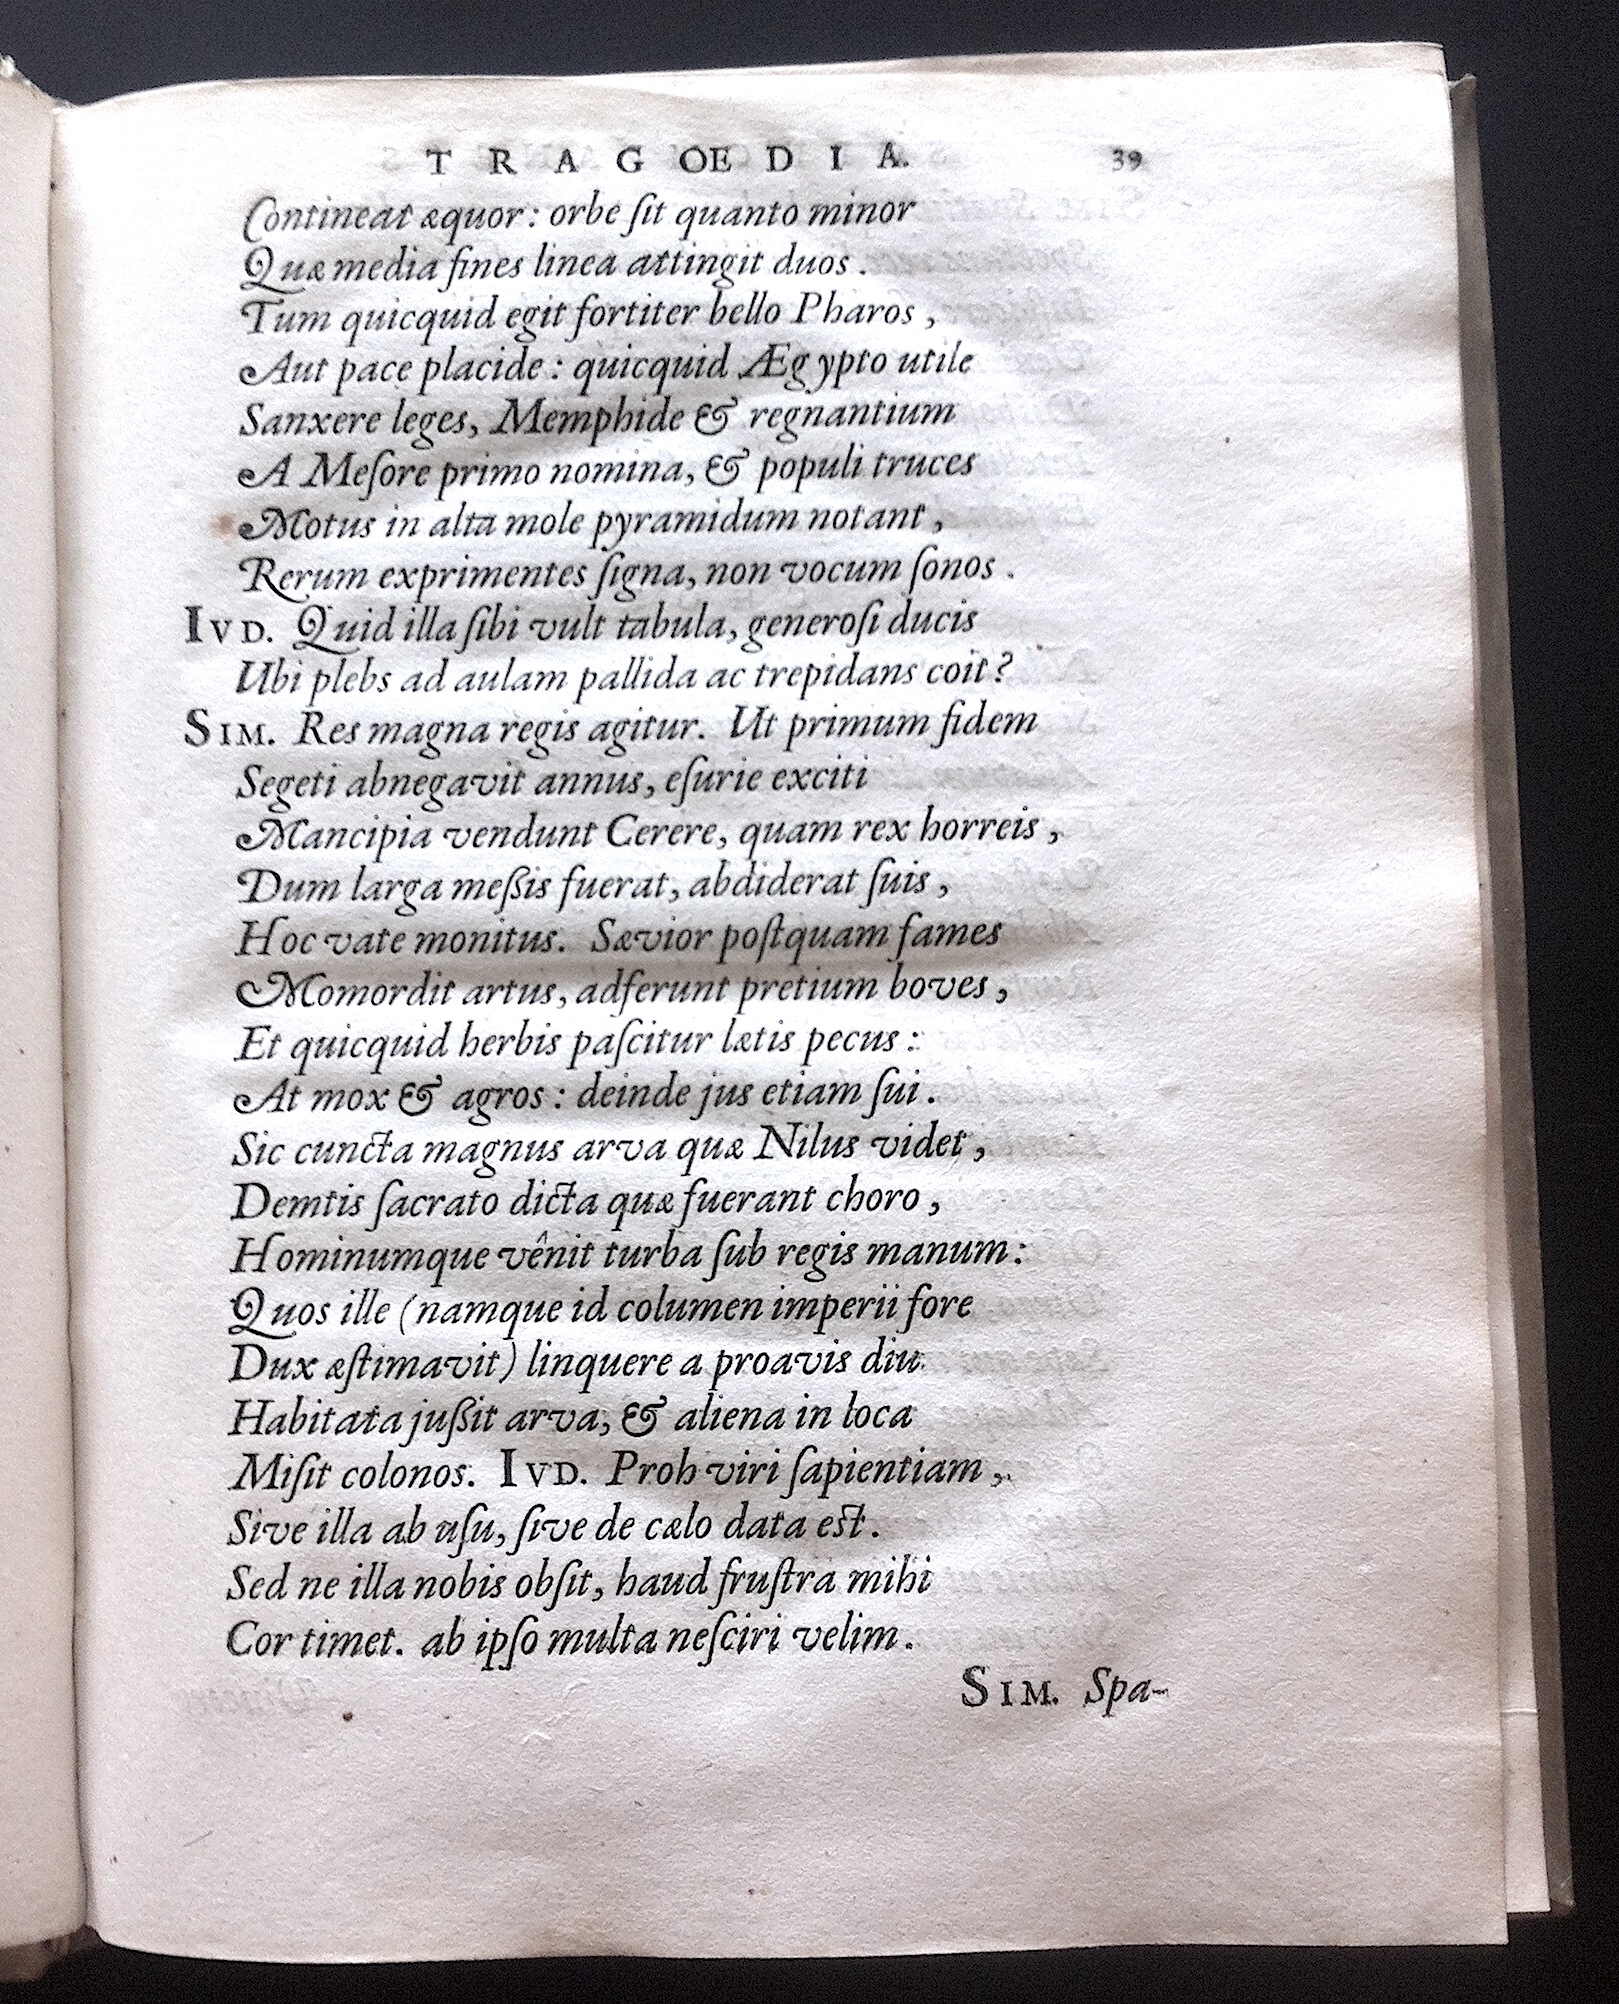 TRAGOEDIA. 39
Contineat æquor: orbe ſit quanto minor
Quæ media fines linea attingit duos.
Tum quicquid egit fortiter bello Pharos,
Aut pace placide: quicquid Ægypto utile
Sanxere leges, Memphide & regnantium
A Meſore primo nomina, & populi truces
Motus in alta mole pyramidum notant,
Rerum exprimentes ſigna, non vocum ſonos.
IVD. Quid illa ſibi vult tabula, generoſi ducis
Ubi plebs ad aulam pallida ac trepidans coit?
SIM. Res magna regis agitur. Ut primum fidem
Segeti abnegavit annus, eſurie exciti
Mancipia vendunt Cerere, quam rex horreis,
Dum larga meßis fuerat, abdiderat ſuis,
Hoc vate monitus. Sævior poſtquam fames
Momordit artus, adferunt pretium boves,
Et quicquid herbis paſcitur lætis pecus:
At mox & agros: deinde jus etiam ſui.
Sic cuncta magnus arva quæ Nilus videt,
Demtis ſacrato dicta quæ fuerant choro,
Hominumque vênit turba ſub regis manum:
Quos ille (namque id columen imperii fore
Dux æſtimavit) linquere a proavis diu
Habitata jußit arva, & aliena in loca
Miſit colonos. IVD. Proh viri ſapientiam,
Sive illa ab uſu, ſive de cælo data est.
Sed ne illa nobis obſit, haud fruſtra mihi
Cor timet. ab ipſo multa neſciri velim.
SIM. Spa-